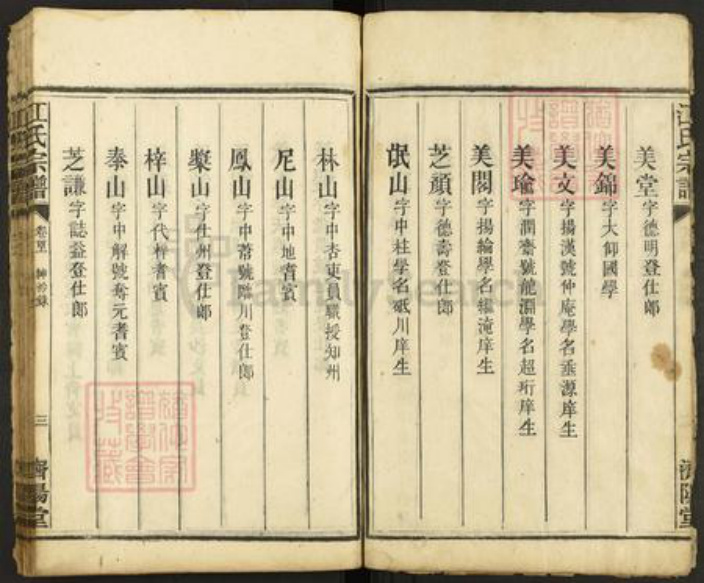 江氏宗譜
美堂字德明登仕郎
美錦字大仰國學
美文字揚漢號仲庵學名垂源庠生
美瑜字潤齋號龍淵學名超珩庠生
美閣字揚綸學名繼淹庠生
芝顏字德壽登仕郎
岷山字中柱學名砥川庠生
濟陽堂
林山字中杏吏員職授知州
尼山字中地耆賓
鳳山字中蒼號臨川登仕郎
櫱山字仕州登仕郎
梓山字代梓耆賓
泰山字中解號奪元耆賓
芝謙字誌益登仕郎
江氏宗譜
三
濟陽堂
FamilySearch